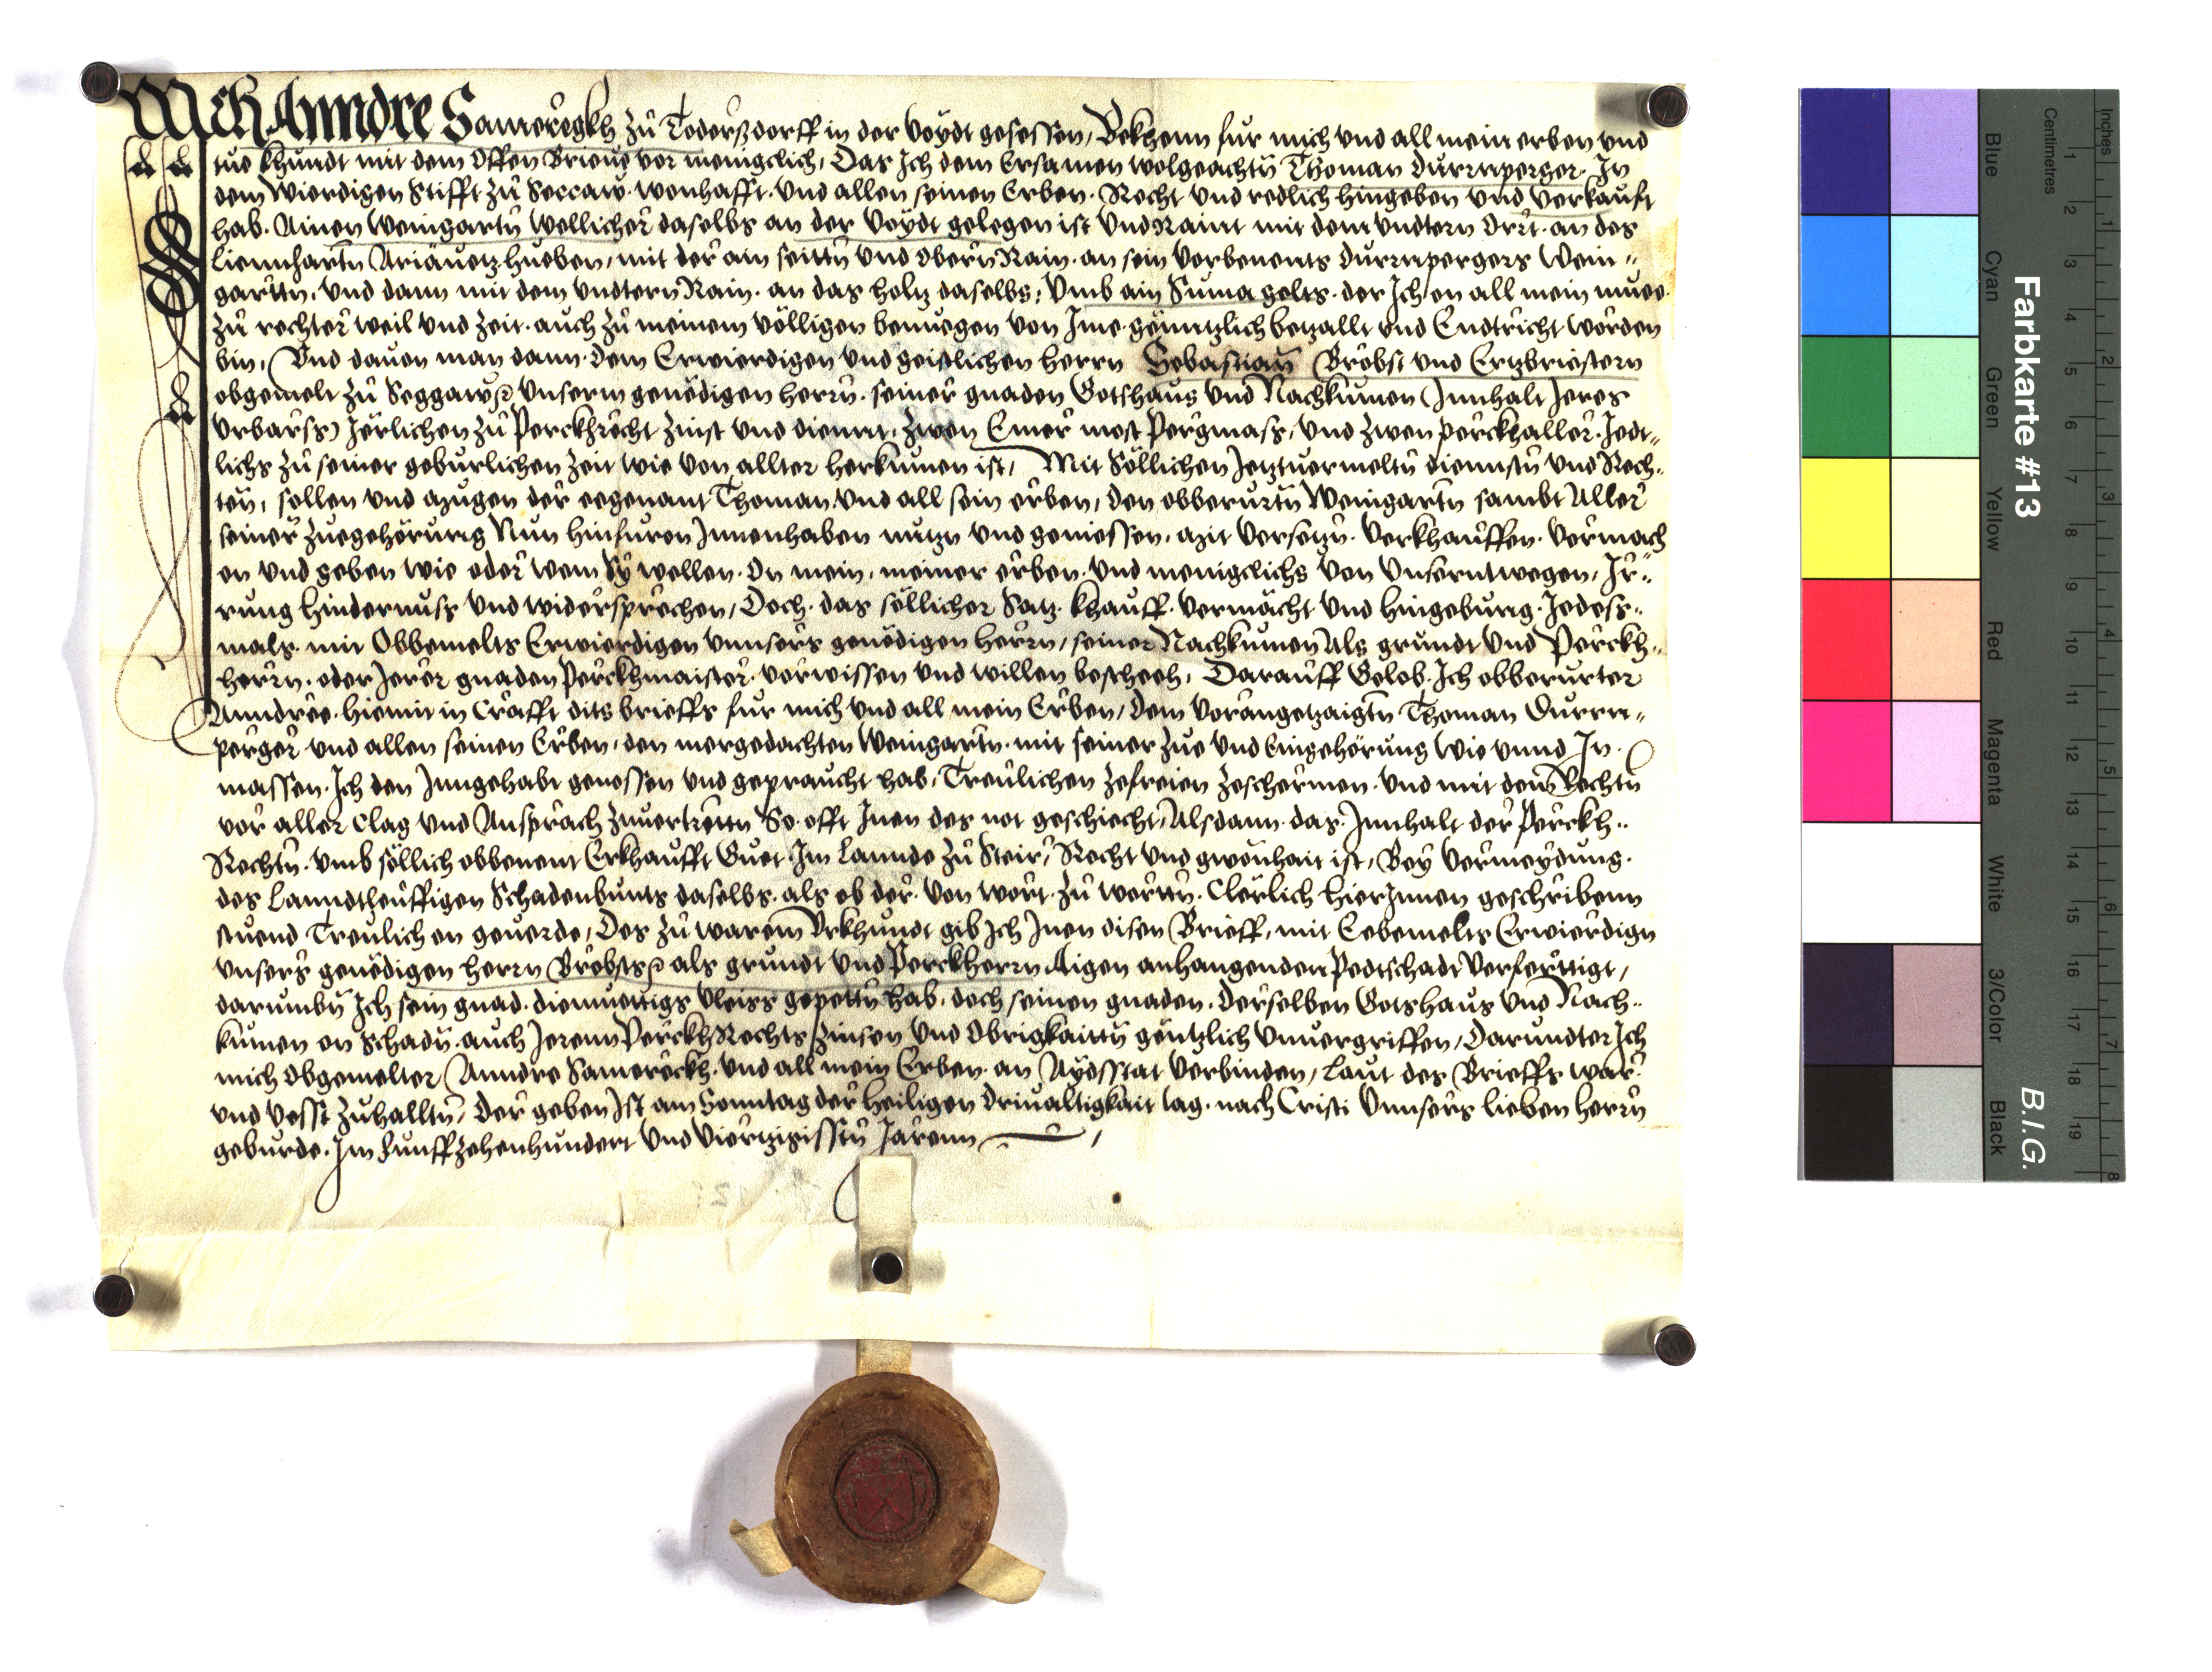 Ich Anndre Sameregkh zu Tederßdorff in der Veydt gesessen, Bekhenn fur mich und all mein erben und
tue khundt mit dem offen Brieue vor menigclich, Das Ich dem Ersamen wolgeachtn Thoman Durrnperger. In
dem Wierdigen Stifft zu Seccaw. wonhafft. und allen seinen Erben. Recht und redlich hingeben und verkaufft
hab. Ainen Weingartn wellicher daselbs an der Veydt gelegen ist und Raint mit dem undtern Orrt. an des
Liennhartn hueben, mit der ain seittn und obern Rain. an sein vorbenents Durrnpergers Wein"
garttn. und dann mit dem undtern Rain. an das holtz daselbs, Umb ain Suma gelts. der Ich on all mein muee.
zu rechter weil und Zeit. auch zu meinem völligen benuegen von Ime. genntzlich betzallt und Endtricht worden
bin, Und dauon man dann. dem Erwierdigen und geistlichen herrn Sebastian Brobst und Ertzbriestern
obgemelt zu Seggaw unserm genedigen herrn. seiner gnaden Gotshaus und Nachkumen (Innhalt Jeres
Urbarss) Jerlichen zu Perckhrecht Zinst und diennt. Zwen Emer most Pergmass, und Zwen perckhaller. Jedt"
lichs zu seiner geburlichen Zeit wie von allter herkumen ist, Mit Söllichen Jetztuermeltn dienstn und Rech"
ten, sollen und mugen der egenant Thoman. und all sein erben, den obberurtn Weingartn sambt Aller
seiner Zuegehörung Nun hinfuron Innenhaben nutzn und geniessen. mit versetzn. verkhauffen. vermach
en und geben wie oder wem Sy wellen. On mein, meiner erben. und menigclichs von unserntwegen, Ir"
rung hindernuss und widersprechen, Doch. das söllicher Satz. khauff. vermächt und hingebung. Jedess"
mals. mit Obbemelts Erwierdigen unnsers genedigen herrn, seiner Nachkumen Als grundt und Perckh"
herrn. oder Jerer gnaden Perckhmaister. vorwissen und willen bescheeh, Darauff Gelob. Ich obberurter
Anndree. hiemit in Crafft dits brieffs fur mich und all mein Erben, dem vorangetzaigtn Thoman Durrn"
perger und allen seinen Erben, den mergedachten Weingartn. mit seiner Zue und Eingehörung Wie unnd In
massen. Ich den Inngehabt genossen und gepraucht hab, Treulichen zefreien zeschermen. und mit dem Rechtn
vor aller Clag und Ansprach zuuertrettn So. offt Inen des not geschiecht, Alsdann. das. Innhalt der Perckh"
Rechtn. umb söllich obbenent Erkhaufft Guet. Im Lannde zu Steir, Recht und gwonhait ist, Bey vermeydung.
des Lanndtheuffigen Schadenbunts daselbs. als ob der. von wort. zu wortn. Clerlich hierInnen geschribenn
stuend Treulich on geuerde, Des zu warem Urkhundt gib Ich Inen disen Brieff, mit Eebemelts Erwierdign
unsers genedigen herrn Brobsts als grundt und Perckherrn Aigen anhangenden Pedtschadt verferttigt,
darumbn Ich sein gnad. diemuettigs vleiss gepettn hab. doch seinen gnaden. derselben Gotshaus und Nach"
kumen on Schadn. auch Jerenn PerckhRechts, Zinsen und Obrigkaittn gentzlich unuergriffen, Darundter Ich
mich obgemelter, Anndre Samereckh. und all mein Erben. an Aydsstat verbinden, Laut des Brieffs war.
und vesst zuhalltn, Der geben Ist am Sonntag der heiligen driualtigkait tag. nach Cristi unnsers lieben herrn
geburde. Im Funffzehenhundert und viertzigisstn Jarenn
Farbkarte #13
B.I.G.
Centimetres
Inches
Blue
Cyan
Green
Yellow
Red
Magenta
White
3/Color
Black
1 2 3 4 5 6 7 8 9 10 11 12 13 14 15 16 17 18 19
1 2 3 4 5 6 7 8